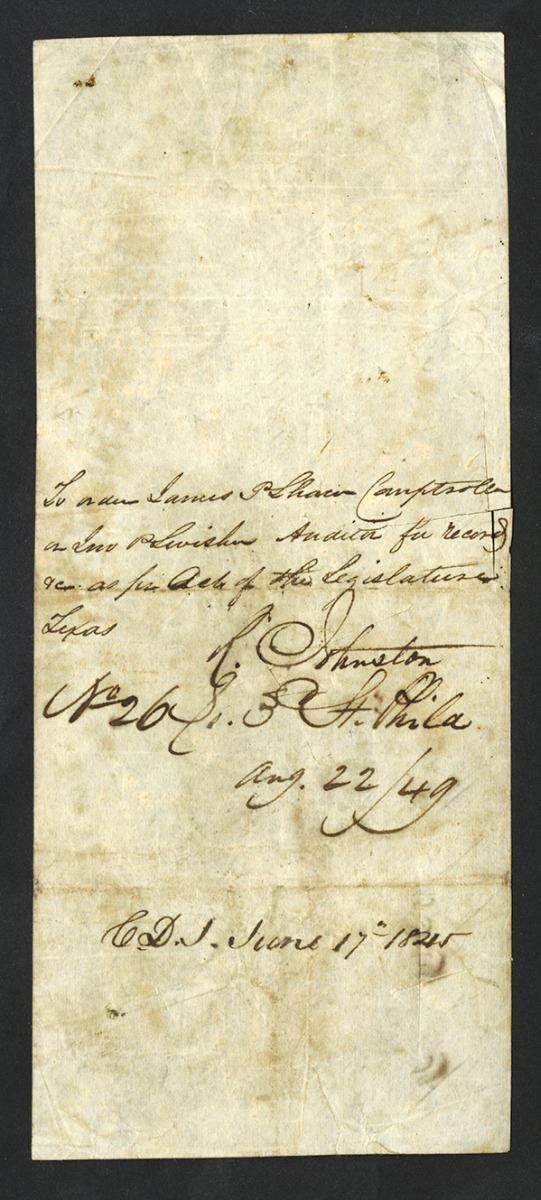 To order James B Shaw Comptroller
or Jno Swisher Auditor for record
&c. as per Act of the Legislature
Texas
R. Johnston
No 26 So. 3d St. Phila
Aug. 22/49
C.D.J. June 17" 1845